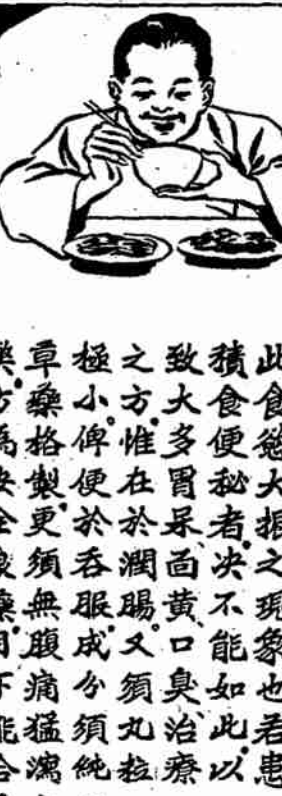 此食慾大振之現象也若患
積食便秘者、決不能如此、以
致大多胃呆面黃、口臭、治療
之方、惟在於潤腸。又須丸粒
極小。俾便於吞服。成分須純
草藥格製、更須無腹痛猛瀉